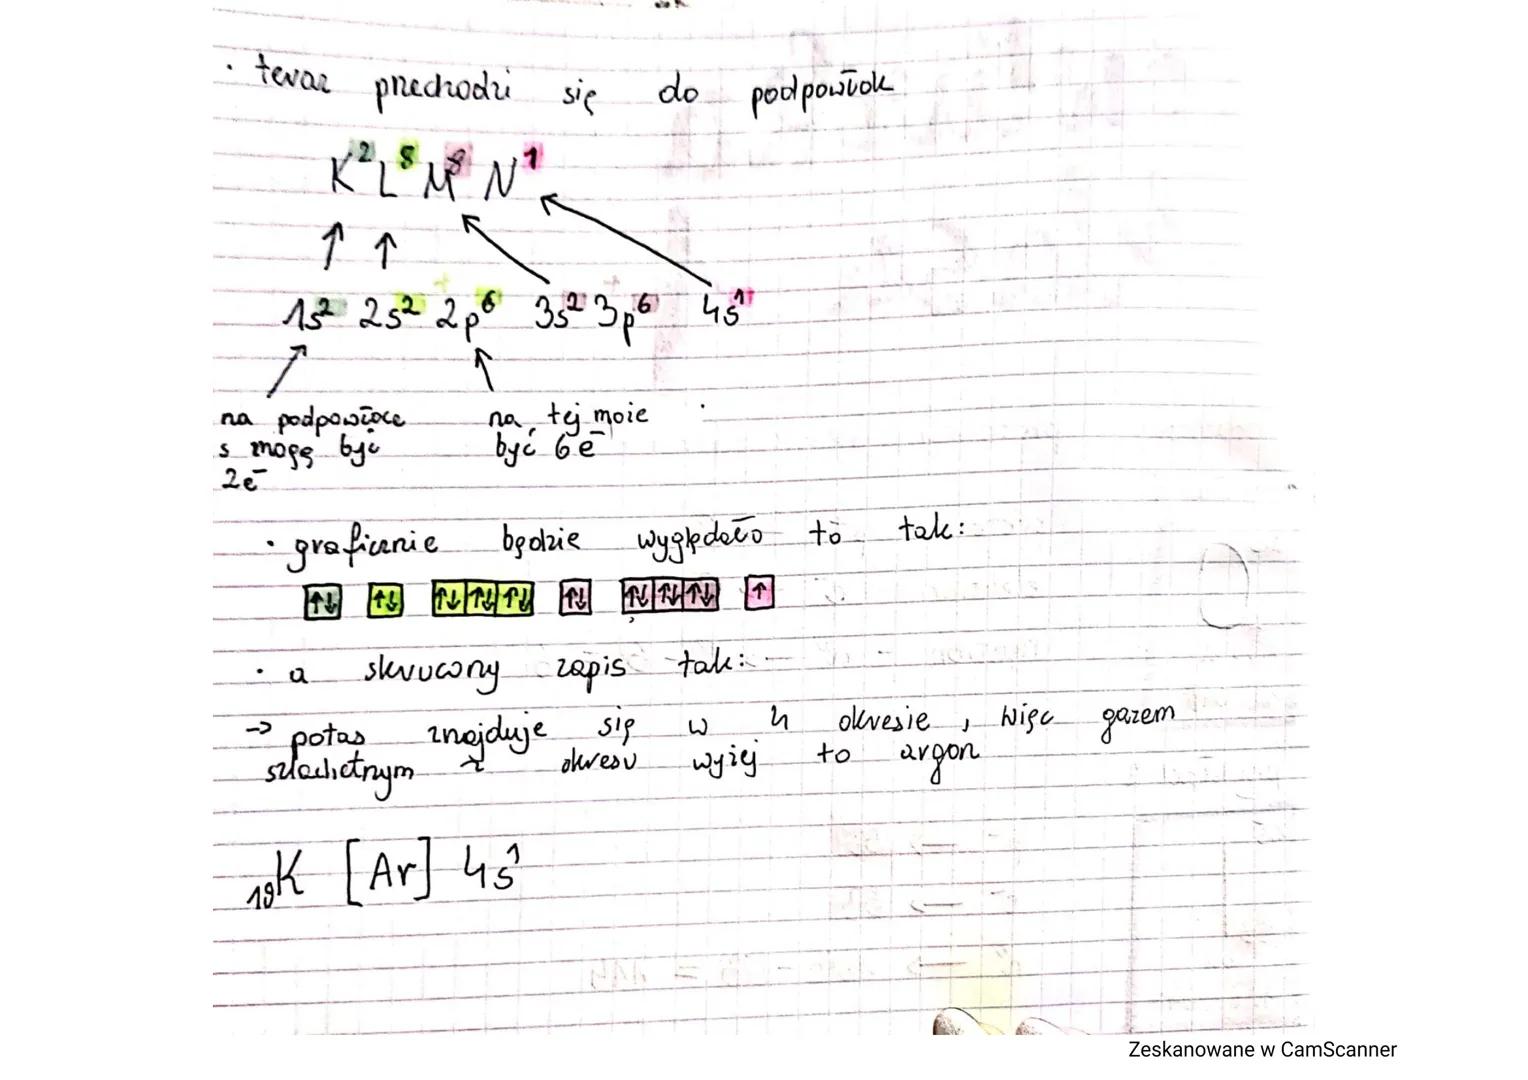 · teraz przechodzi się do podpowłok
K² L⁸ M⁸ N¹
↑ ↑
+ +
1s² 2s² 2p⁶ 3s² 3p⁶ 4s¹
na podpowłoce
s mogą być
2e⁻
na tej może
być 6e⁻
· graficznie będzie wyglądało to tak:
↑↓ ↑↓ ↑↓ ↑↓ ↑↓ ↑↓ ↑↓ ↑↓ ↑↓ ↑
· a skrucony zapis tak:
→ potas znajduje się w 4 okresie, więc gazem
szlachetnym z okresu wyżej to argon
₁₉K [Ar] 4s¹
Zeskanowane w CamScanner